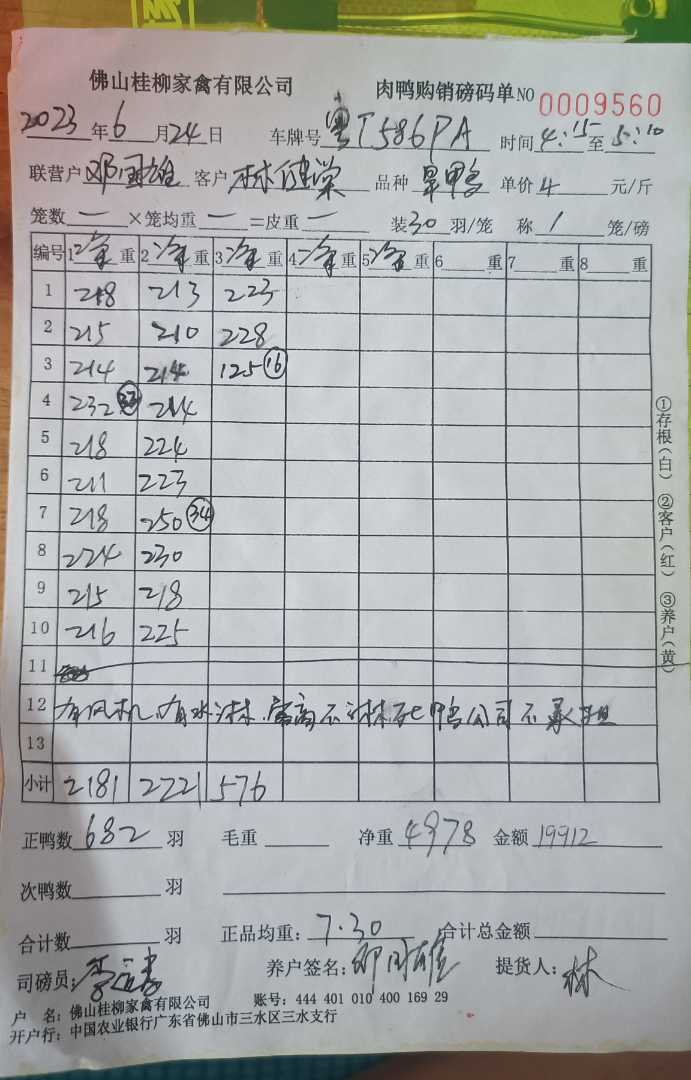 佛山桂柳家禽有限公司 肉鸭购销磅码单 NO 0009560
2023年6月24日 车牌号 粤T586PA 时间 4:15至5:10
联营户 邓国雄 客户 林健棠 品种 旱鸭 单价 4 元/斤
笼数 一 ×笼均重 一 =皮重 一 装30羽/笼 称 1 笼/磅
编号 1净重 2净重 3净重 4净重 5净重 6 重 7 重 8 重
1 218 213 223
2 215 210 228
3 214 214 125 ⑯
4 232 214
5 218 224
6 211 223
7 218 250 ㉞
8 224 230
9 215 218
10 216 225
11
12 有风机,有水淋.离不淋死鸭公司不承担
13
小计 2181 2221 576
正鸭数 682 羽 毛重 净重 4978 金额 19912
次鸭数 羽
合计数 羽 正品均重: 7.30 合计总金额
司磅员: 养户签名: 邓国雄 提货人: 林
户 名: 佛山桂柳家禽有限公司 账号: 444 401 010 400 169 29
开户行: 中国农业银行广东省佛山市三水区三水支行
①存根(白) ②客户(红) ③养户(黄)